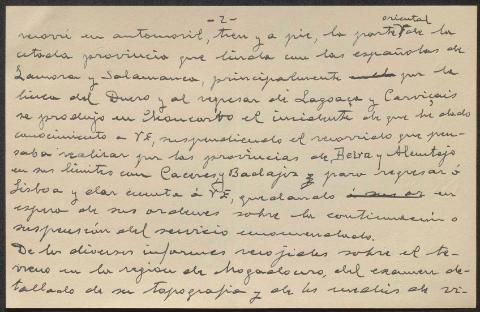 -2-
recorrí en automovil, tren y a pie, la parte oriental de la
citada provincia que linda con las españolas de
Zamora y Salamanca, principalmente por la
linea del Duero y al regresar de Lagoaça y Carviçais
se produjo en Moncorbo el incidente de que he dado
conocimiento a VE, suspendiendo el recorrido que pen-
saba realizar por las provincias de Beira y Alentejo
en sus limites con Caceres y Badajoz y para regresar á
Lisboa y dar cuenta á VE, quedando en
espera de sus ordenes sobre la continuación o
suspensión del servicio encomendado.
De los diversos informes recojidos sobre el te-
rreno en la región de Mogadouro, del examen de-
tallado de su topografia y de los medios de vi-